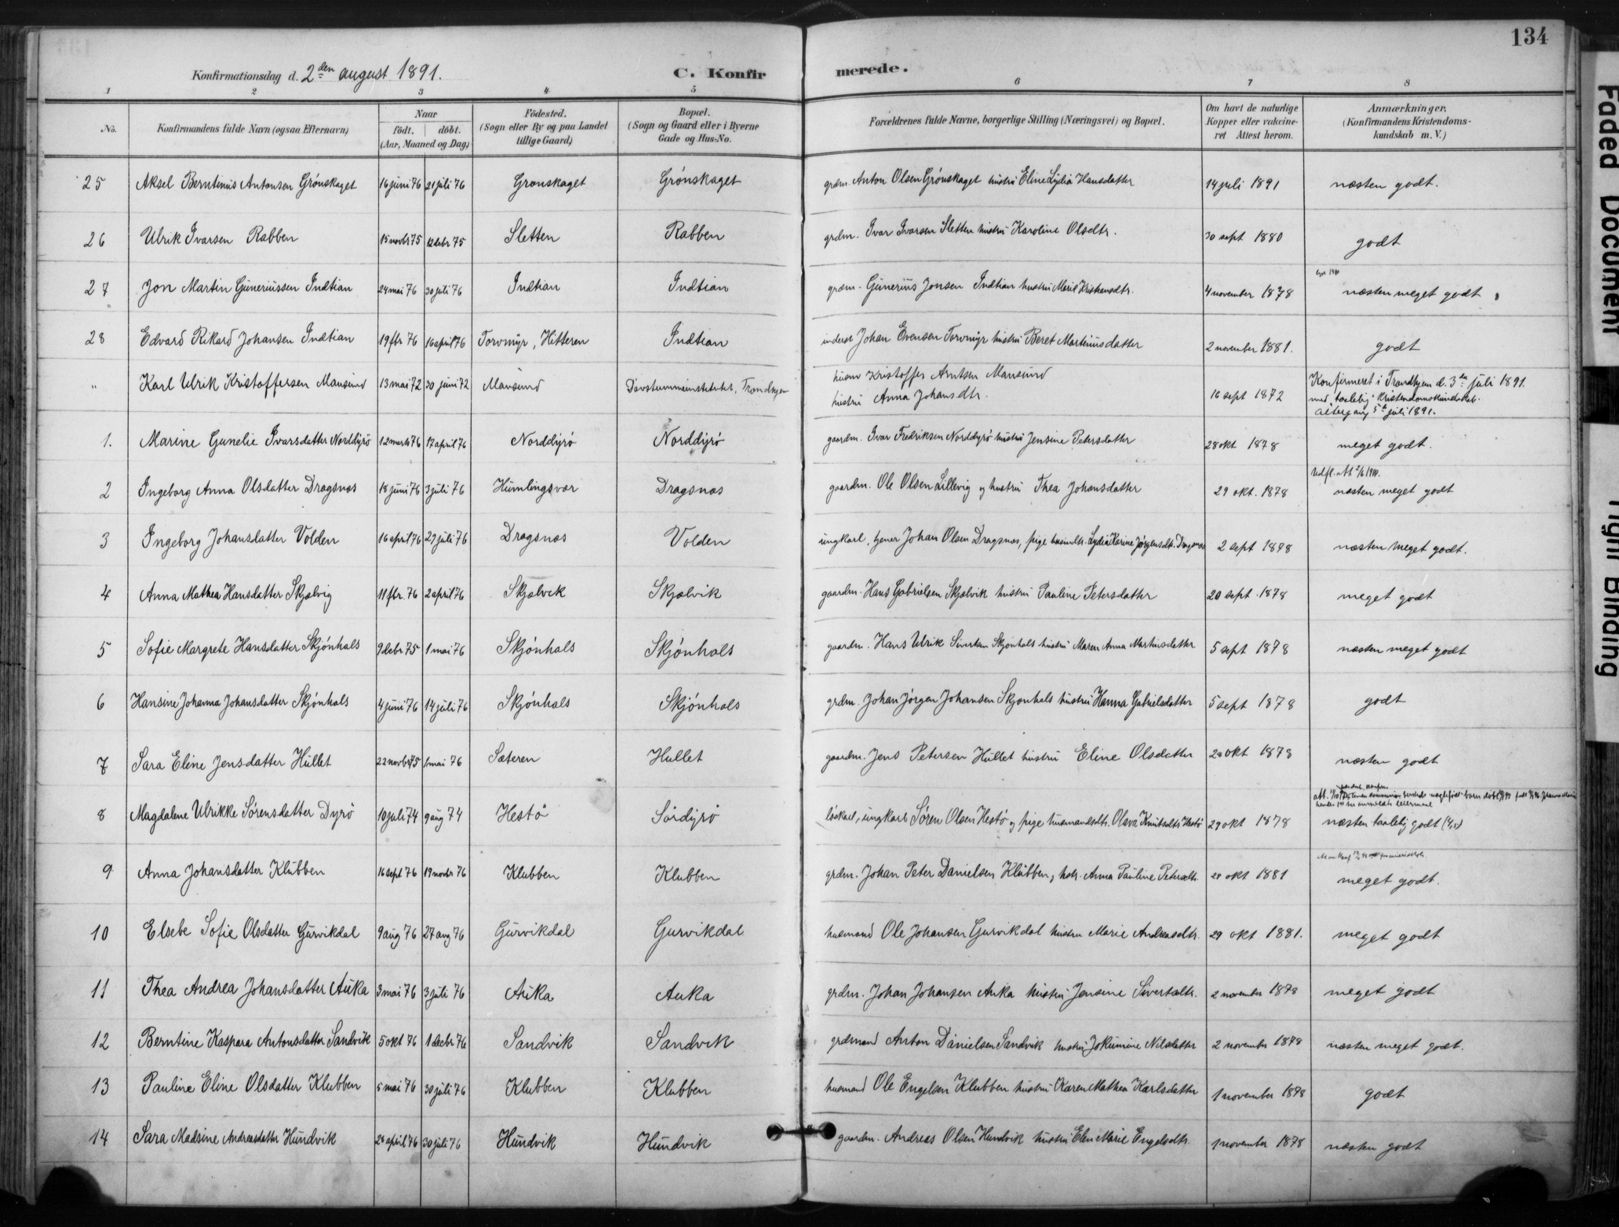 134
Konfirmationsdag d. 2den august 1891.
C. Konfirmerede.
1 2 3 4 5 6 7 8
No. Konfirmandens fulde Navn (ogsaa Efternavn) Naar født. døbt. (Aar, Maaned og Dag) Fødested. (Sogn eller By og paa Landet tillige Gaard) Bopæl. (Sogn og Gaard eller i Byerne Gade og Hus-No. Forældrenes fulde Navne, borgerlige Stilling (Næringsvei) og Bopæl. Om havt de naturlige Kopper eller vaccineret Attest herom. Anmærkninger. (Konfirmandens Kristendomskundskab m. V.)
25 Aksel Berntinus Antonsen Grönskaget 16 juni 76 21 juli 76 Gronskaget Grönskaget grdm. Anton Olsen Grönskaget hustru Eline Lydia Hansdatter 14 juli 1891 næsten godt.
26 Ulrik Ivarsen Rabben 15 novbr 75 12 decbr 75 Sletten Rabben grdm. Ivar Ivarsen Sletten hustru Karoline Olsdtr. 30 sept 1880 godt
27 Jon Martin Guneriussen Indtian 24 mai 76 30 juli 76 Indtian Indtian grdm. Gunerius Jonsen Indtian hustru Marit Kristensdtr. 4 november 1878 næsten meget godt
28 Edvard Rikard Johansen Indtian 19 fbr 76 16 april 76 Torvmyr, Hitteren Indtian inderst Johan Evensen Torvmyr hustru Beret Martinusdatter 2 november 1881. godt
" Karl Ulrik Kristoffersen Mausund 13 mai 72 30 juni 72 Mausund Døvstummeinstitutet, Trondhjem husm Kristoffer Arntsen Mausund hustru Anna Johansdtr. 16 sept 1872 Konfirmeret i Trondhjem d. 3die juli 1891 med "taalelig" Kristendomskundskab. altergang 5te juli 1891.
1. Marine Gunelie Ivarsdatter Norddyrö 12 marts 76 17 april 76 Norddyrö Norddyrö gaardm. Ivar Fredriksen Norddyrö hustru Jensine Petersdatter 28 okt 1878 meget godt.
2 Ingeborg Anna Olsdatter Dragsnæs 18 juni 76 3 juli 76 Humlingsvær Dragsnæs gaardm. Ole Olsen Lillevig og hustru Thea Johansdatter 29 okt. 1878 næsten meget godt
3 Ingeborg Johansdatter Volden 16 april 76 27 juli 76 Dragsnæs Volden ungkarl, tjener Johan Olsen Dragsnæs, pige Lydia Karine Jørgensdtr. Dragsnæs 2 sept 1878 næsten meget godt.
4 Anna Mathea Hansdatter Skjælvig 11 fbr. 76 2 april 76 Skjælvik Skjælvik gaardm. Hans Gabrielsen Skjælvik hustru Pauline Petersdatter 20 sept. 1878 meget godt
5 Sofie Margrete Hansdatter Skjönhals 9 decbr 75 1 mai 76 Skjönhals Skjönhals gaardm. Hans Ulrik Sivertsen Skjönhals hustru Maren Anna Martinusdatter 5 sept 1878 næsten meget godt
6 Hansine Johanna Johansdatter Skjönhals 4 juni 76 14 juli 76 Skjönhals Skjönhals grdm. Johan Jørgen Johansen Skjönhals hustru Hanna Gabrielsdatter 5 sept 1878 godt
7 Sara Eline Jensdatter Hullet 22 novbr 75 1 mai 76 Sæteren Hullet gaardm. Jens Petersen Hullet hustru Eline Olsdatter 29 okt 1878 næsten godt
8 Magdalene Ulrikke Sörensdatter Dyrö 10 juli 74 9 aug 74 Hestö Sördyrö löskarl, ungkarl Sören Olsen Hestö og pige husmandsdtr. Olava Knutsdtr. Hestö 29 okt 1878 næsten taalelig godt
9 Anna Johansdatter Klubben 16 sept 76 19 novbr 76 Klubben Klubben grdm. Johan Peter Danielsen Klubben, hstr. Anna Pauline Petersdtr. 28 okt 1881 meget godt.
10 Elsebe Sofie Olsdatter Gurvikdal 9 aug 76 27 aug 76 Gurvikdal Gurvikdal husmand Ole Johansen Gurvikdal hustru Marie Andreasdtr. 29 okt 1881. meget godt
11 Thea Andrea Johansdatter Auka 3 mai 76 3 juli 76 Auka Auka grdm. Johan Johansen Auka hustru Jensine Sivertsdtr. 2 november 1878 meget godt
12 Berntine Kaspara Antonsdatter Sandvik 5 okt 76 1 decbr 76 Sandvik Sandvik grdmand Anton Danielsen Sandvik hustru Jokumine Nilsdatter 2 november 1878 næsten meget godt.
13 Pauline Eline Olsdatter Klubben 5 mai 76 30 juli 76 Klubben Klubben husmand Ole Engelsen Klubben hustru Karen Mathea Karlsdatter 1 november 1878 godt
14 Sara Madsine Andreasdatter Hundvik 24 april 76 30 juli 76 Hundvik Hundvik gaardm. Andreas Olsen Hundvik hustru Elen Marie Engelsdtr. 1 november 1878 næsten godt
Faded Document
Tight Binding